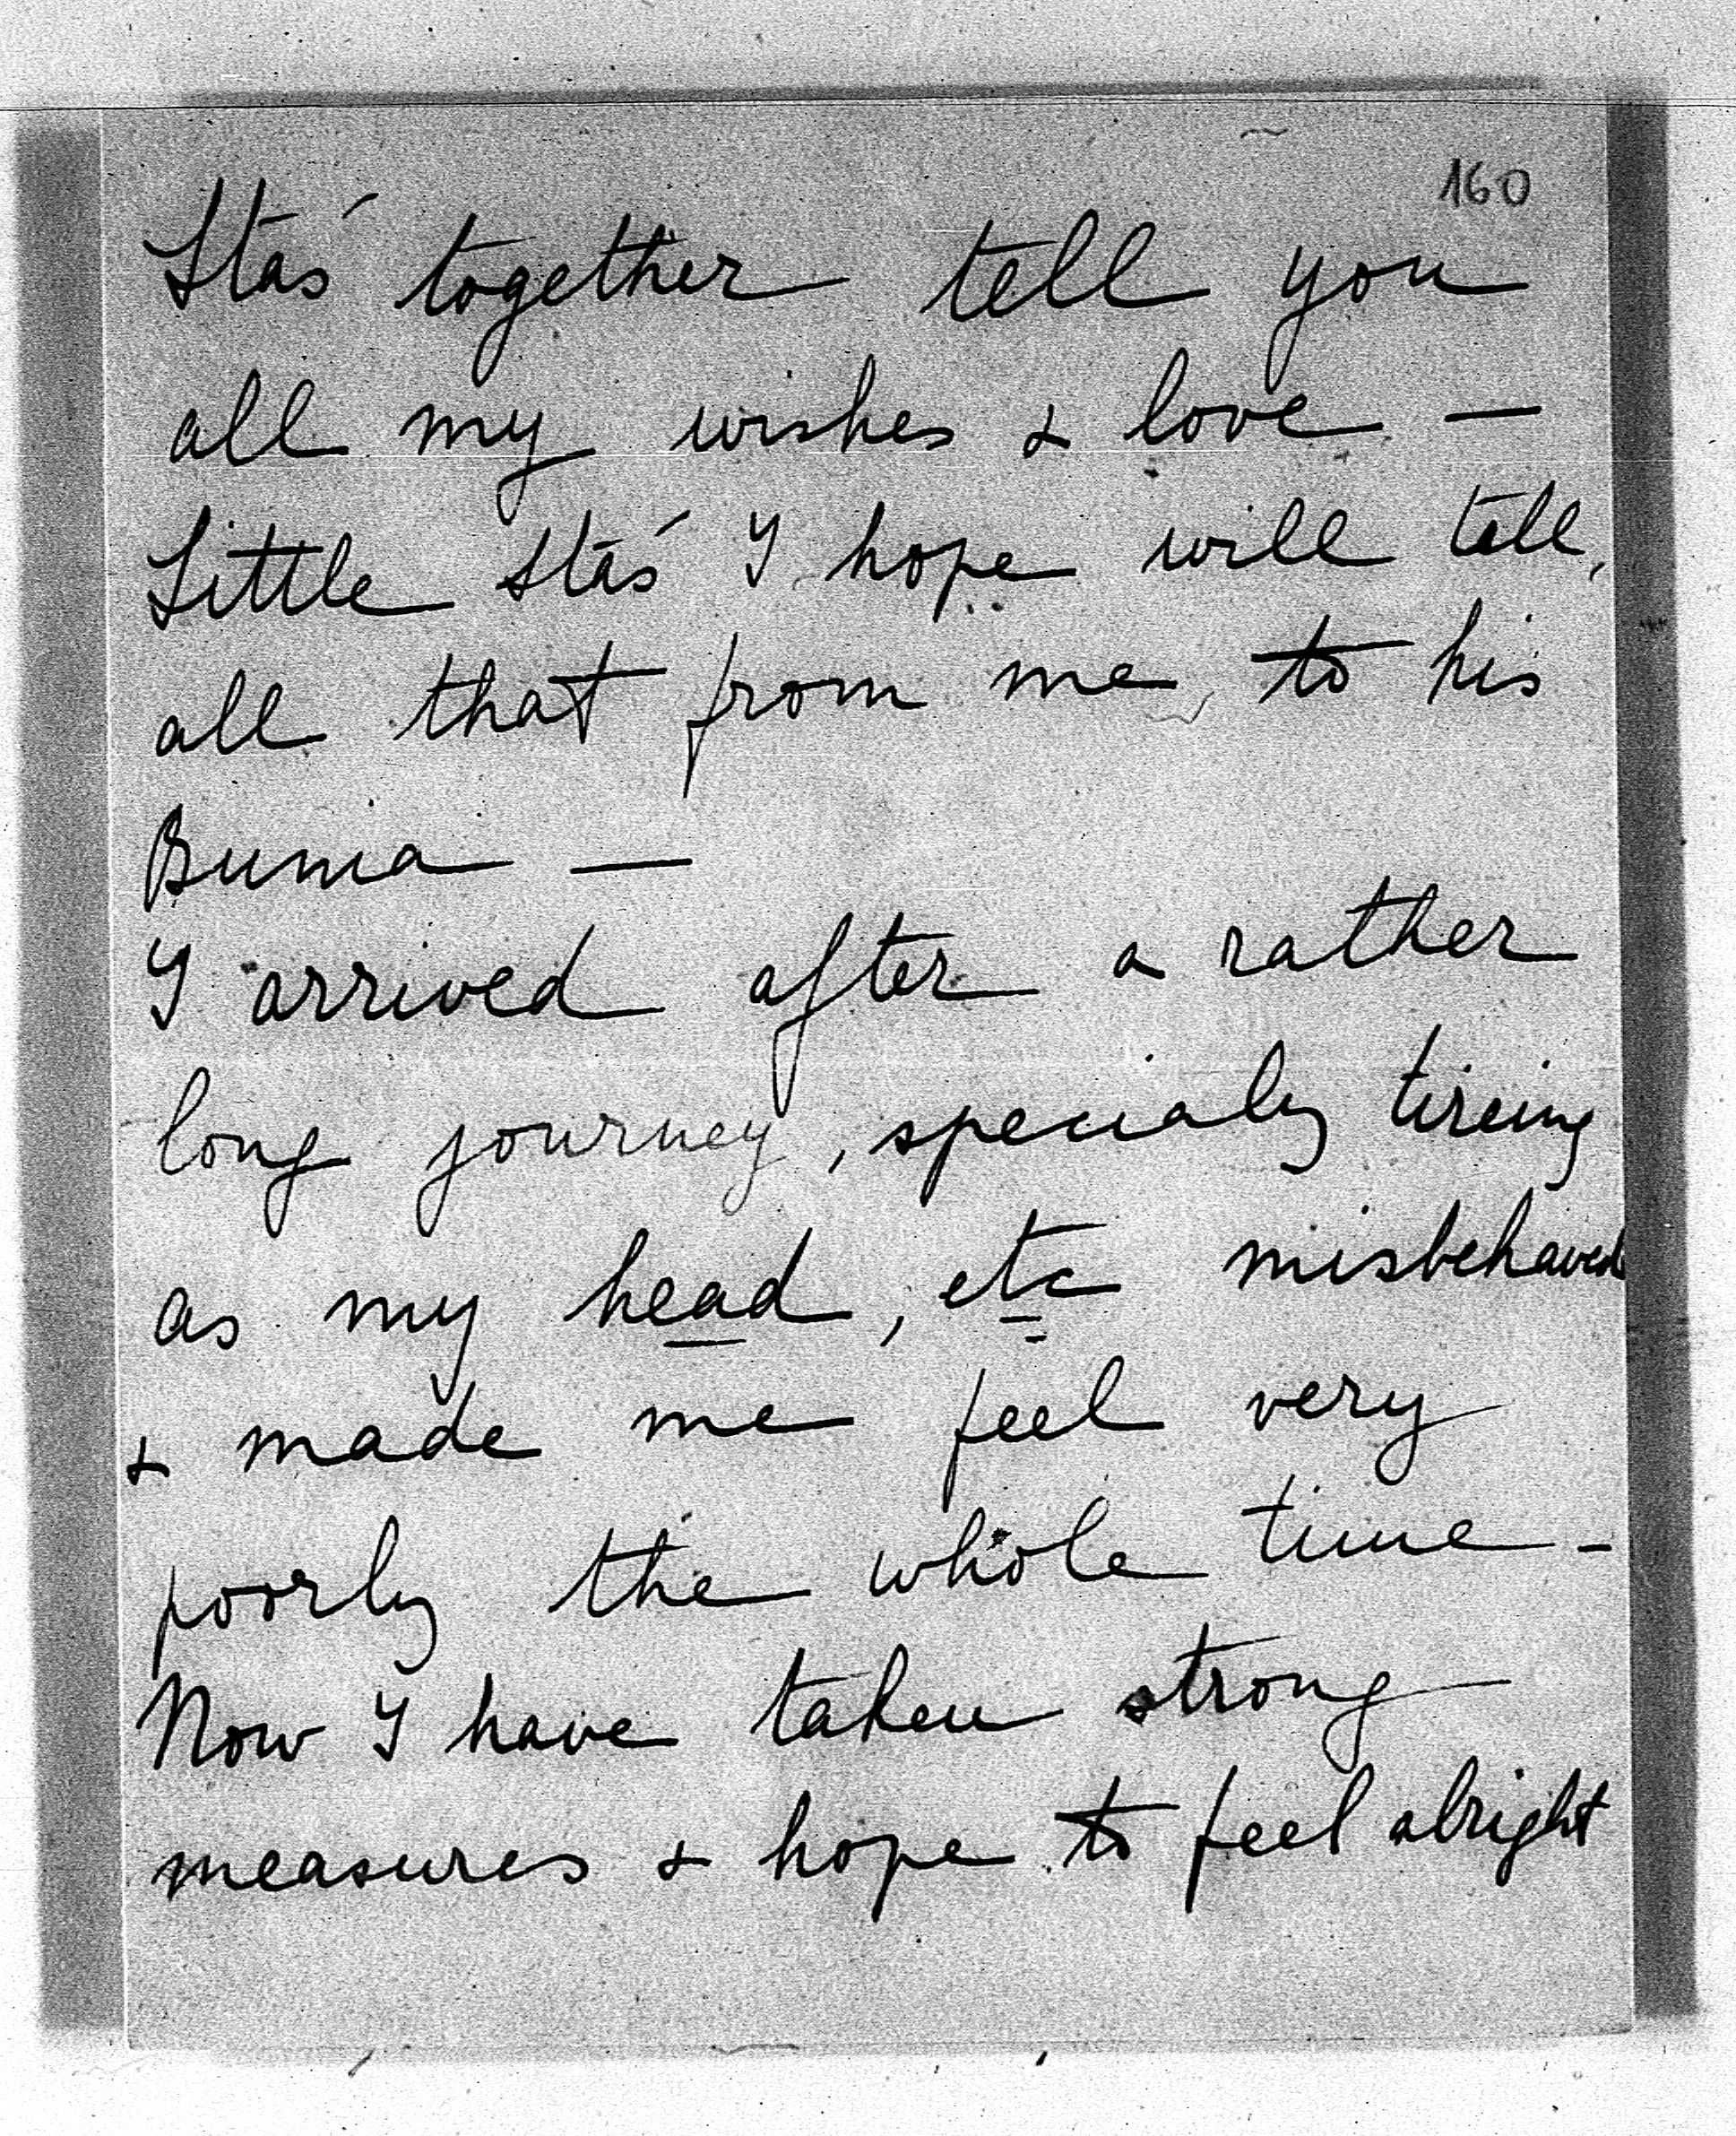 160
Staś together tell you
all my wishes & love —
Little Staś I hope will tell,
all that from me to his
Bunia —
I arrived after a rather
long journey, specialy tireing
as my head, etc misbehaved
& made me feel very
poorly the whole time -
Now I have taken strong
measures & hope to feel alright